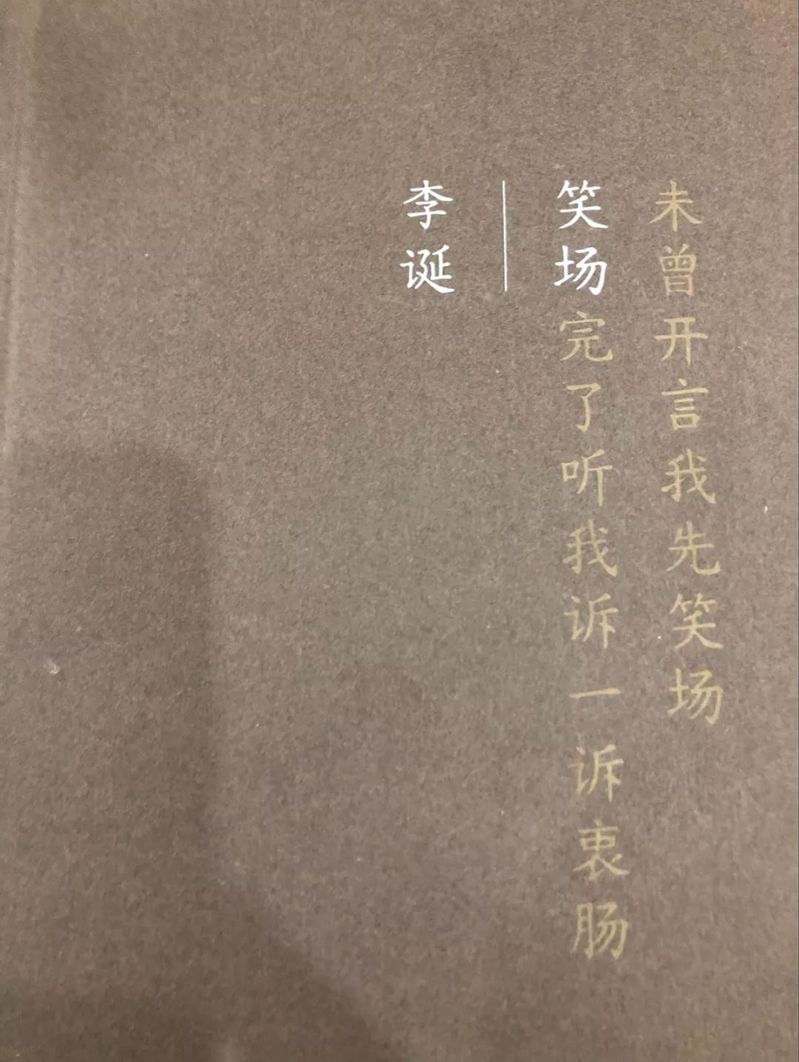 未曾开言我先笑场
笑场完了听我诉一诉衷肠
李诞